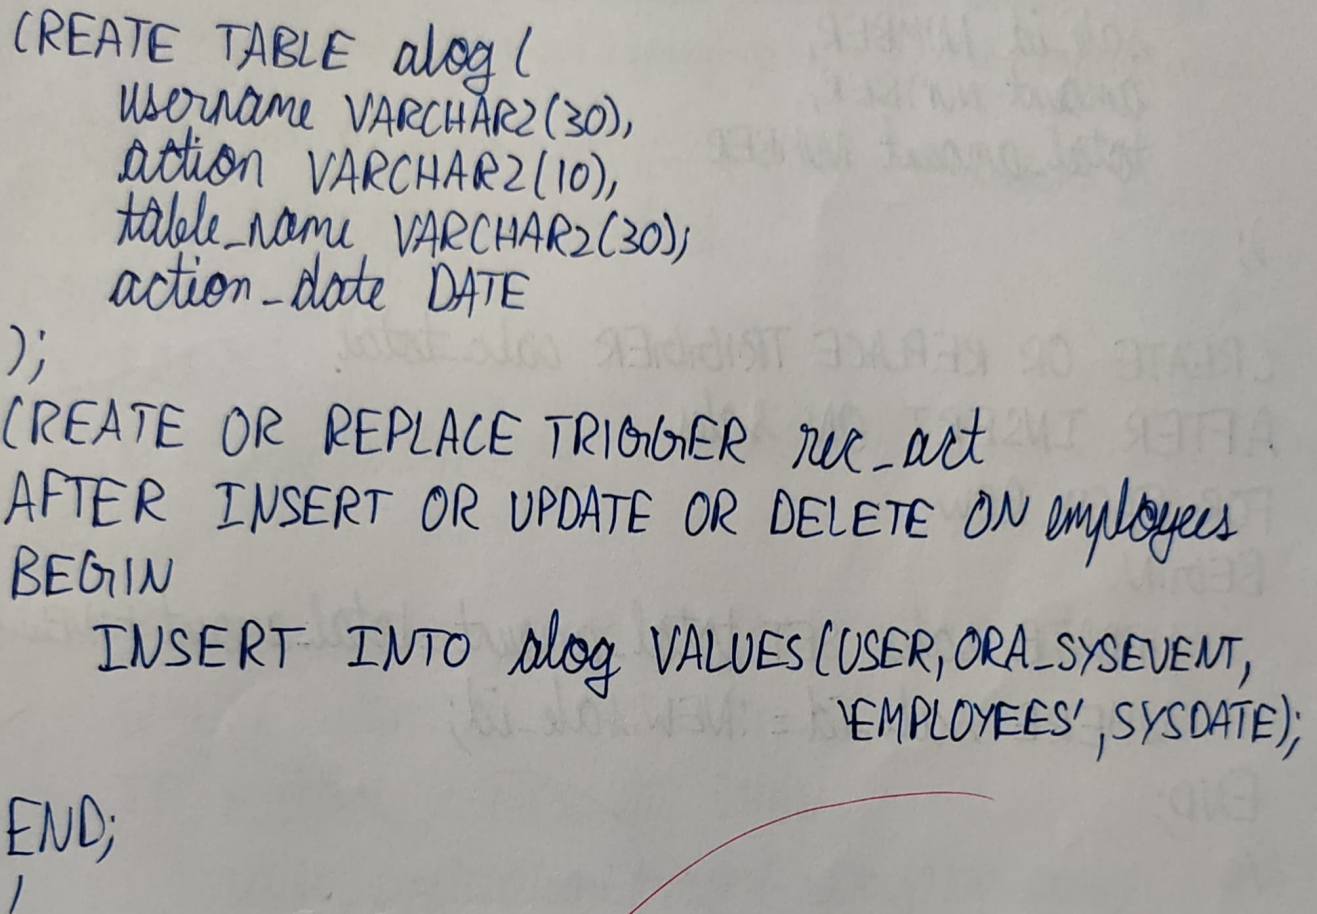 CREATE TABLE alog (
username VARCHAR2(30),
action VARCHAR2(10),
table_name VARCHAR2(30),
action_date DATE
);
CREATE OR REPLACE TRIGGER rec_act
AFTER INSERT OR UPDATE OR DELETE ON employees
BEGIN
INSERT INTO alog VALUES (USER, ORA_SYSEVENT,
'EMPLOYEES', SYSDATE);
END;
/